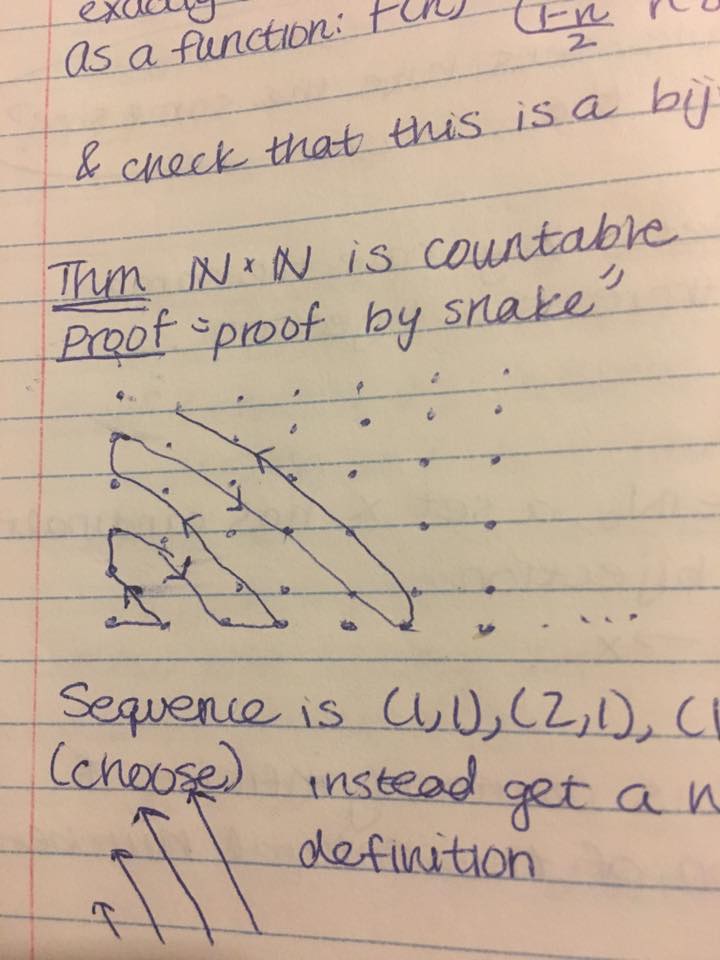 exactly
as a function: f(n) (1-n/2 n o
& check that this is a bij
Thm ℕ × ℕ is countable
Proof "proof by snake"
Sequence is (1,1), (2,1), (1
(choose) instead get a n
definition